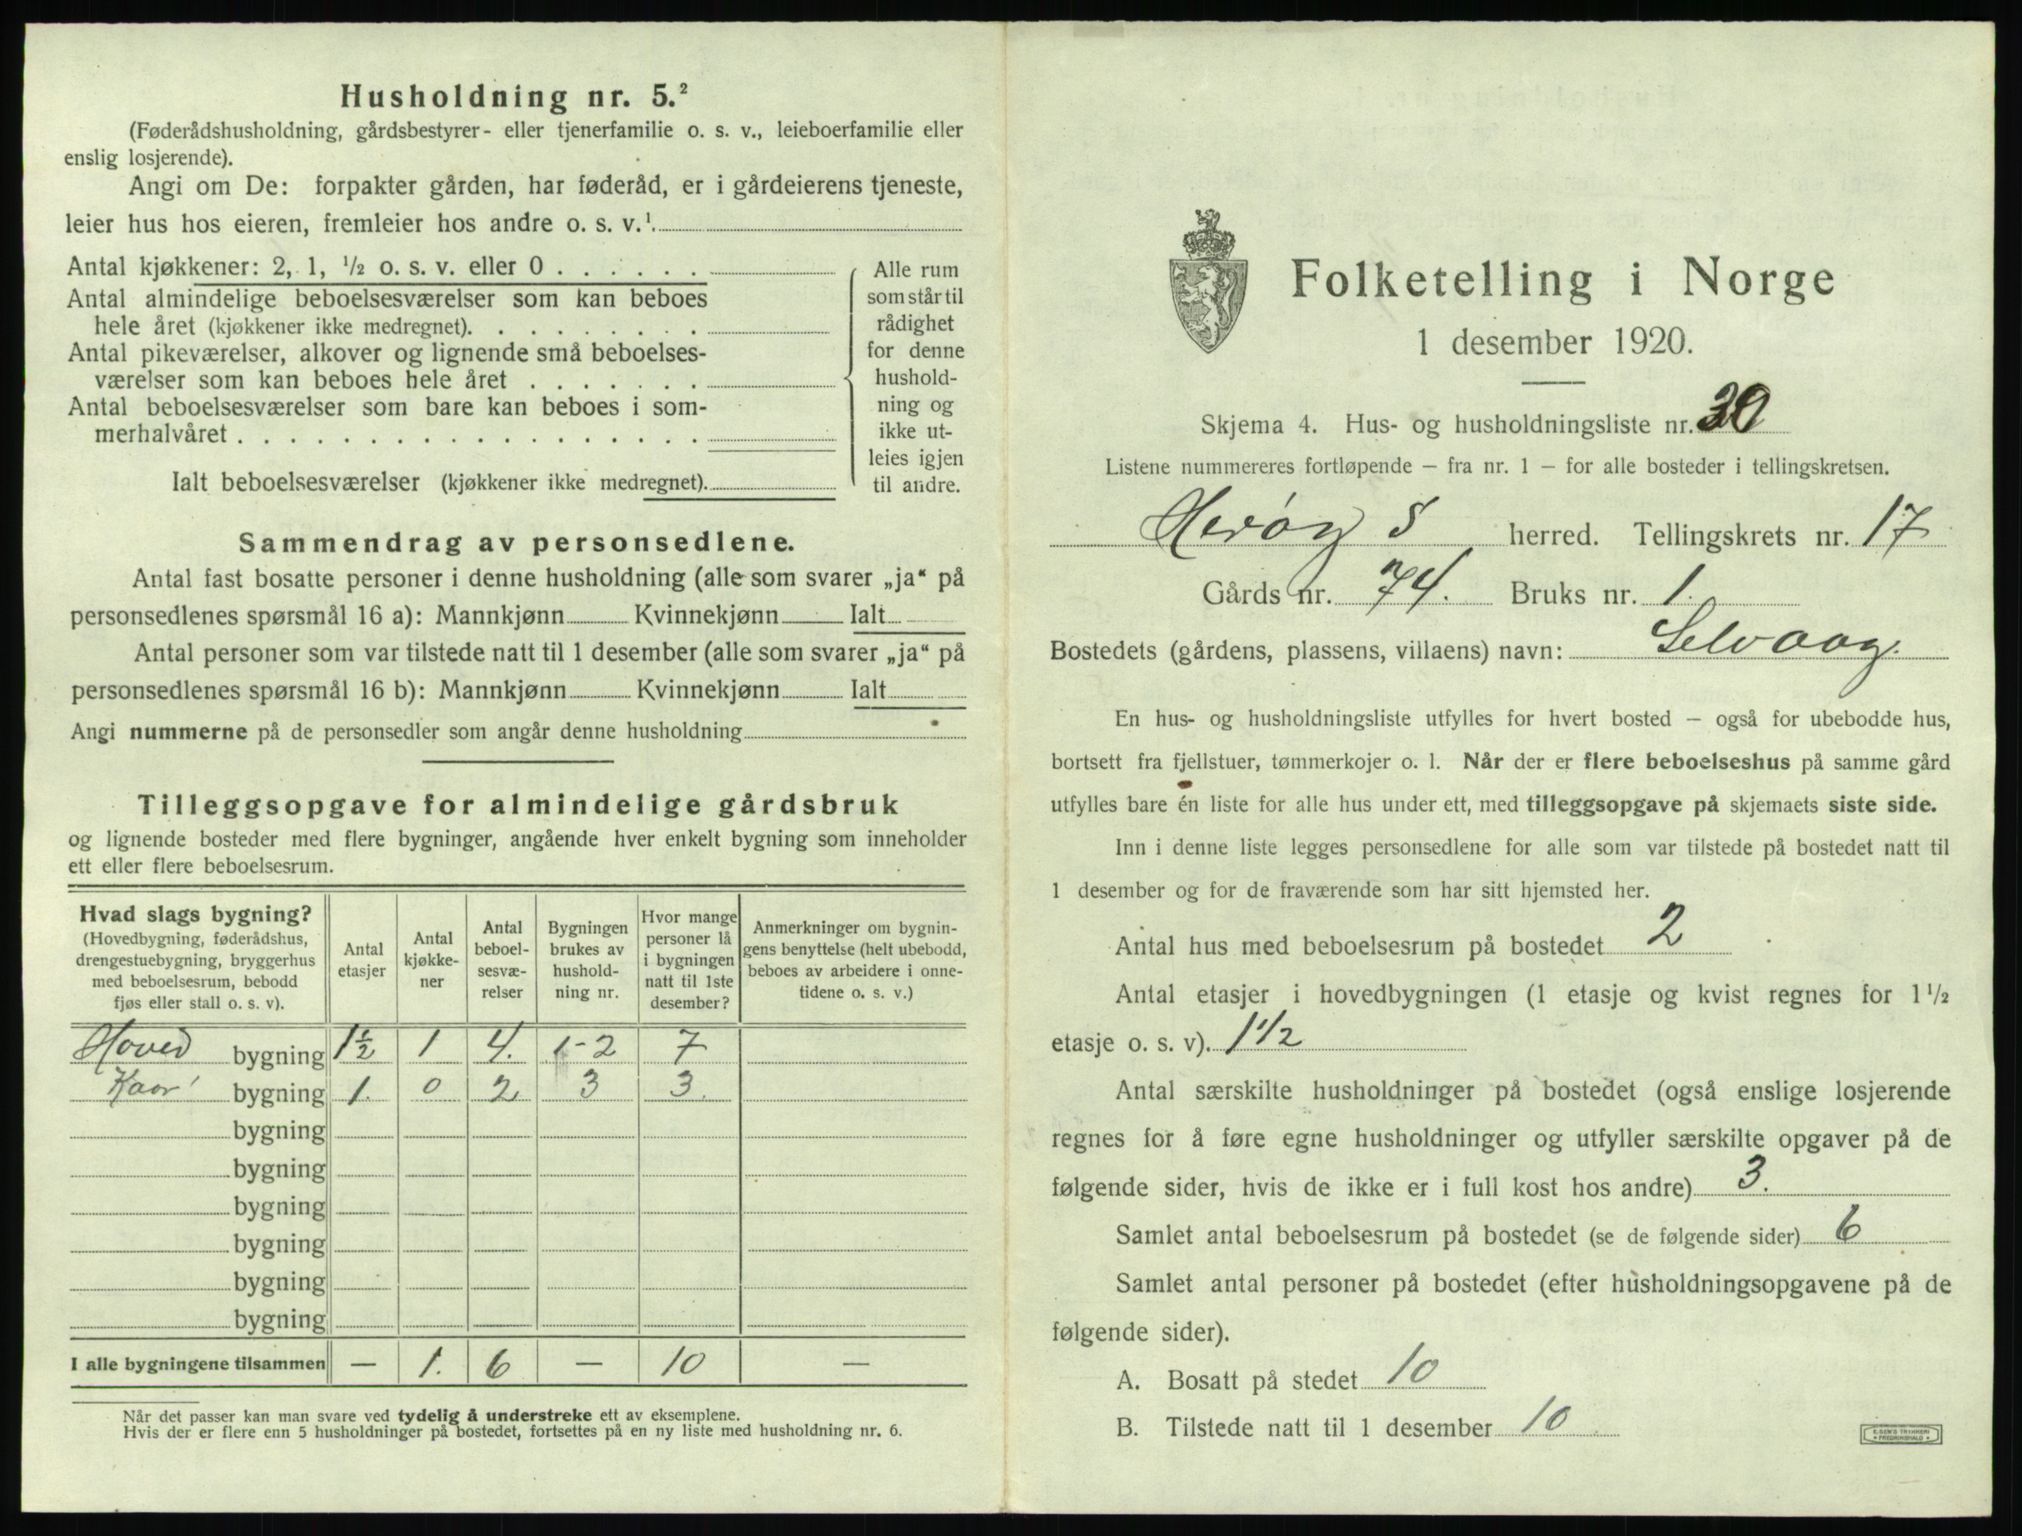 Husholdning nr. 5.²
(Føderådshusholdning, gårdsbestyrer- eller tjenerfamilie o. s. v., leieboerfamilie eller
enslig losjerende).
Angi om De: forpakter gården, har føderåd, er i gårdeierens tjeneste,
leier hus hos eieren, fremleier hos andre o. s. v.¹.
Antal kjøkkener: 2, 1, ½ o. s. v. eller 0 . . . . . .
Antal almindelige beboelsesværelser som kan beboes
hele året (kjøkkener ikke medregnet). . . . . . . . .
Antal pikeværelser, alkover og lignende små beboelses-
værelser som kan beboes hele året . . . . . . .
Antal beboelsesværelser som bare kan beboes i som-
merhalvåret . . . . . . . . . . . . . . . . . .
Ialt beboelsesværelser (kjøkkener ikke medregnet).
Alle rum
som står til
rådighet
for denne
hushold-
ning og
ikke ut-
leies igjen
til andre.
Sammendrag av personsedlene.
Antal fast bosatte personer i denne husholdning (alle som svarer „ja“ på
personsedlenes spørsmål 16 a): Mannkjønn Kvinnekjønn Ialt
Antal personer som var tilstede natt til 1 desember (alle som svarer „ja“ på
personsedlenes spørsmål 16 b): Mannkjønn Kvinnekjønn Ialt
Angi nummerne på de personsedler som angår denne husholdning
Tilleggsopgave for almindelige gårdsbruk
og lignende bosteder med flere bygninger, angående hver enkelt bygning som inneholder
ett eller flere beboelsesrum.
Hvad slags bygning?
(Hovedbygning, føderådshus,
drengestuebygning, bryggerhus
med beboelsesrum, bebodd
fjøs eller stall o. s. v).
Antal
etasjer
Antal
kjøkke-
ner
Antal
beboel-
sesvæ-
relser
Bygningen
brukes av
hushold-
ning nr.
Hvor mange
personer lå
i bygningen
natt til 1ste
desember?
Anmerkninger om bygnin-
gens benyttelse (helt ubebodd,
beboes av arbeidere i onne-
tidene o. s. v.)
Hoved bygning 1½ 1 4. 1-2 7
Kaar bygning 1. 0 2 3 3.
bygning
bygning
bygning
bygning
bygning
bygning
I alle bygningene tilsammen — 1. 6 — 10 —
Når det passer kan man svare ved tydelig å understreke ett av eksemplene.
Hvis der er flere enn 5 husholdninger på bostedet, fortsettes på en ny liste med husholdning nr. 6.
Folketelling i Norge
1 desember 1920.
Skjema 4. Hus- og husholdningsliste nr. 30
Listene nummereres fortløpende – fra nr. 1 – for alle bosteder i tellingskretsen.
Herøy S herred. Tellingskrets nr. 17
Gårds nr. 74. Bruks nr. 1.
Bostedets (gårdens, plassens, villaens) navn: Selvaag.
En hus- og husholdningsliste utfylles for hvert bosted – også for ubebodde hus,
bortsett fra fjellstuer, tømmerkojer o. l. Når der er flere beboelseshus på samme gård
utfylles bare én liste for alle hus under ett, med tilleggsopgave på skjemaets siste side.
Inn i denne liste legges personsedlene for alle som var tilstede på bostedet natt til
1 desember og for de fraværende som har sitt hjemsted her.
Antal hus med beboelsesrum på bostedet 2
Antal etasjer i hovedbygningen (1 etasje og kvist regnes for 1½
etasje o. s. v). 1 1/2
Antal særskilte husholdninger på bostedet (også enslige losjerende
regnes for å føre egne husholdninger og utfyller særskilte opgaver på de
følgende sider, hvis de ikke er i full kost hos andre) 3.
Samlet antal beboelsesrum på bostedet (se de følgende sider) 6
Samlet antal personer på bostedet (efter husholdningsopgavene på de
følgende sider).
A. Bosatt på stedet 10
B. Tilstede natt til 1 desember 10